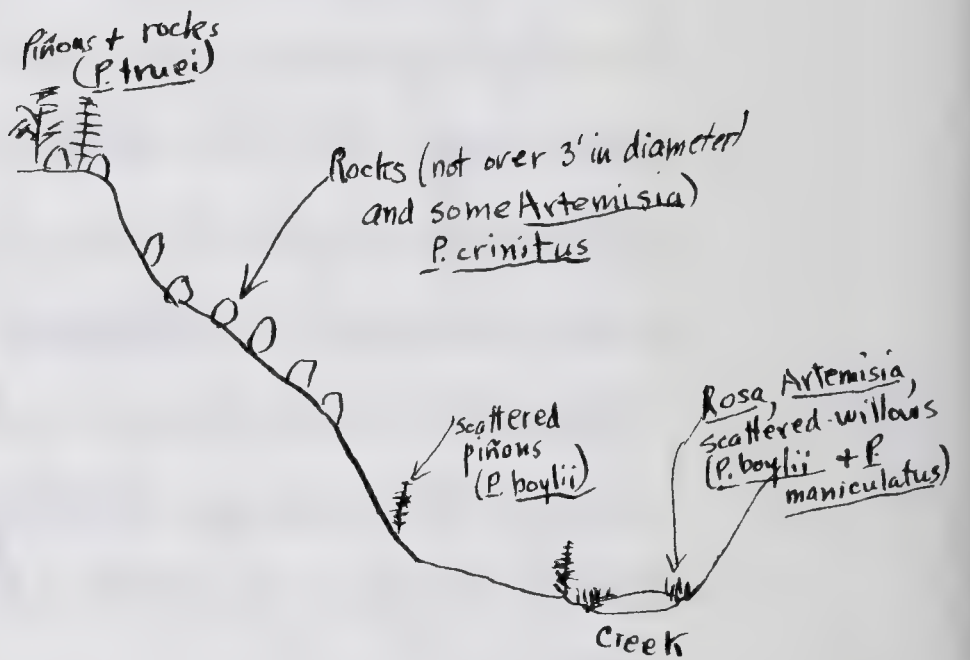 Piñons + rocks
(P. truei)
Rocks (not over 3' in diameter
and some Artemisia)
P. crinitus
scattered
piñons
(P. boylii)
Rosa, Artemisia,
scattered willows
(P. boylii + P.
maniculatus)
Creek